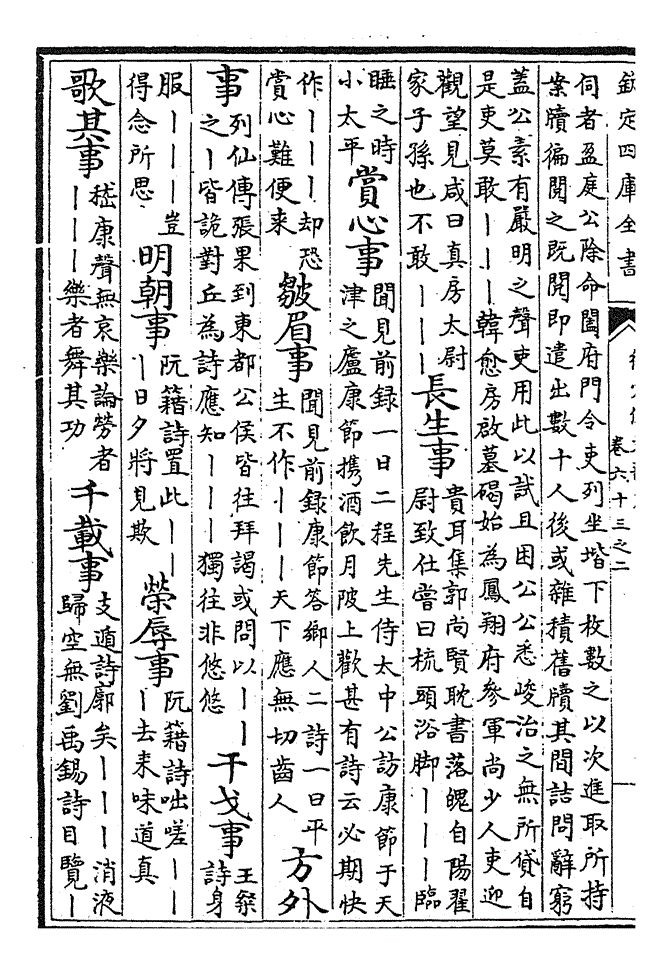 欽定四庫全書
卷六十三之二
伺者盈庭公除命闔府門令吏列坐堦下枚數之以次進取所持
案牘徧閱之既閱即遣出數十人後或雜積舊牘其間詰問辭窮
蓋公素有嚴明之聲吏用此以試且困公公悉峻治之無所貸自
是吏莫敢丨丨丨韓愈房啟墓碣始為鳳翔府參軍尚少人吏迎
觀望見咸曰真房太尉
家子孫也不敢丨丨丨
長生事
貴耳集郭尚賢耽書落魄自陽翟
尉致仕嘗曰梳頭浴脚丨丨丨臨
睡之時
小太平
賞心事
聞見前録一日二程先生侍太中公訪康節于天
津之廬康節携酒飲月陂上歡甚有詩云必期快
作丨丨丨却恐
賞心難便來
皺眉事
聞見前録康節答鄉人二詩一曰平
生不作丨丨丨天下應無切齒人
方外
事
列仙傳張果到東都公侯皆往拜謁或問以丨丨
之丨皆詭對丘為詩應知丨丨丨獨往非悠悠
干戈事
王粲
詩身
服丨丨丨豈
得念所思
明朝事
阮籍詩置此丨丨
丨日夕將見欺
榮辱事
阮籍詩咄嗟丨丨
丨去来味道真
歌其事
嵇康聲無哀樂論勞者
丨丨丨樂者舞其功
千載事
支遁詩廓矣丨丨丨消液
歸空無劉禹錫詩目覽丨